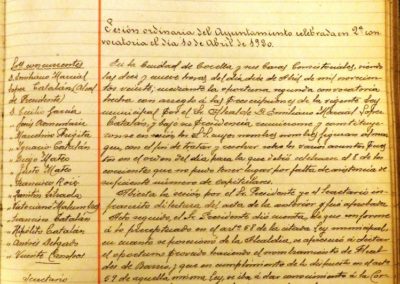 Sesión ordinaria del Ayuntamiento celebrada en 2ª con
vocatoria el día 10 de Abril de 1920.
Sres. concurrentes
D. Emiliano Marcial
López Catalán (Alcal
de Presidente)
D. Emilio García
Marcelino
Ignacio Catalán
Diego Mateo
Justo Mateo
Francisco Roig
Francisco Catalán
Hipólito Catalán
Andrés Delgado
Vicente
Secretario
En la Ciudad de y sus Casas Consistoriales, siendo
las diez y nueve horas del día diez de Abril de mil novecien
tos veinte, mediante la oportuna segunda convocatoria
hecha con arreglo a las prescripciones de la vigente Ley
municipal por el Sr. Alcalde D. Emiliano Marcial López
Catalán, y bajo su Presidencia, reunieron y constituye
ron en sesión los Sres. cuyos nombres figuran al mar
gen, con el fin de tratar y resolver sobre los varios asuntos pues
tos en el orden del día para la que debió celebrarse el 8 de los
corrientes que no pudo tener lugar por falta de asistencia de su
ficiente número de capitulares.
Abierta la sesión por el Sr. Presidente yo el Secretario in
frascrito di lectura del acta de la anterior y fué aprobada
Acto seguido, el Sr. Presidente dió cuenta de que conforme
a lo preceptuado en el artº 58 de la citada Ley municipal,
en cuanto se posesionó de la Alcaldía, se apresuró a dictar
el oportuno haciendo el nombramiento de Alcal
des de Barrio, y que en cumplimiento de lo dispuesto en el artº
59 de aquella misma Ley, se iba a dar conocimiento a la Cor